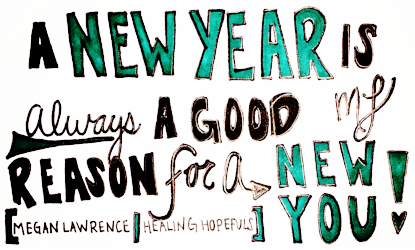 A NEW YEAR IS
always A GOOD
REASON for a NEW
YOU!
[MEGAN LAWRENCE | HEALING HOPEFULS]